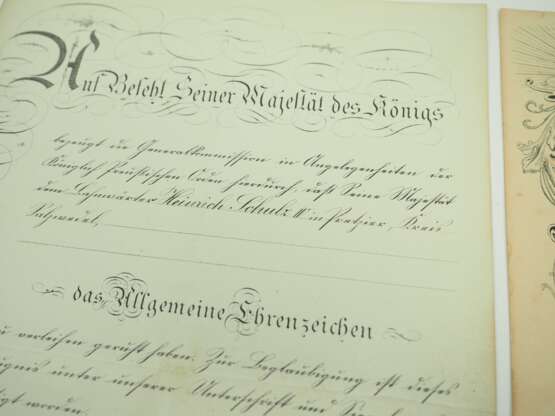 Auf Befehl Seiner Majestät des Königs
bezeugt die Generalkommission in Angelegenheiten der
Königlich Preußischen Orden hierdurch, daß Seine Majestät
dem Bahnwärter Heinrich Schulz II in Pretzier, Kreis
Salzwedel,
das Allgemeine Ehrenzeichen
zu verleihen geruht haben. Zur Beglaubigung ist dieses
unter unserer Unterschrift und
worden.